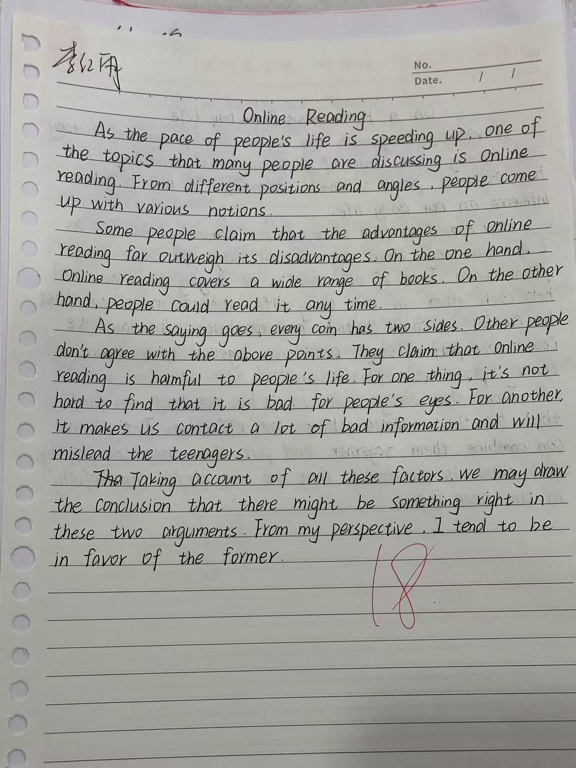 李红雨
No.
Date. / /
Online Reading
As the pace of people's life is speeding up, one of
the topics that many people are discussing is online
reading. From different positions and angles, people come
up with various notions.
Some people claim that the advantages of online
reading far outweigh its disadvantages. On the one hand,
Online reading covers a wide range of books. On the other
hand, people could read it any time.
As the saying goes, every coin has two sides. Other people
don't agree with the above points. They claim that online
reading is harmful to people's life. For one thing, it's not
hard to find that it is bad for people's eyes. For another,
it makes us contact a lot of bad information and will
mislead the teenagers.
Taking account of all these factors, we may draw
the conclusion that there might be something right in
these two arguments. From my perspective, I tend to be
in favor of the former.
18